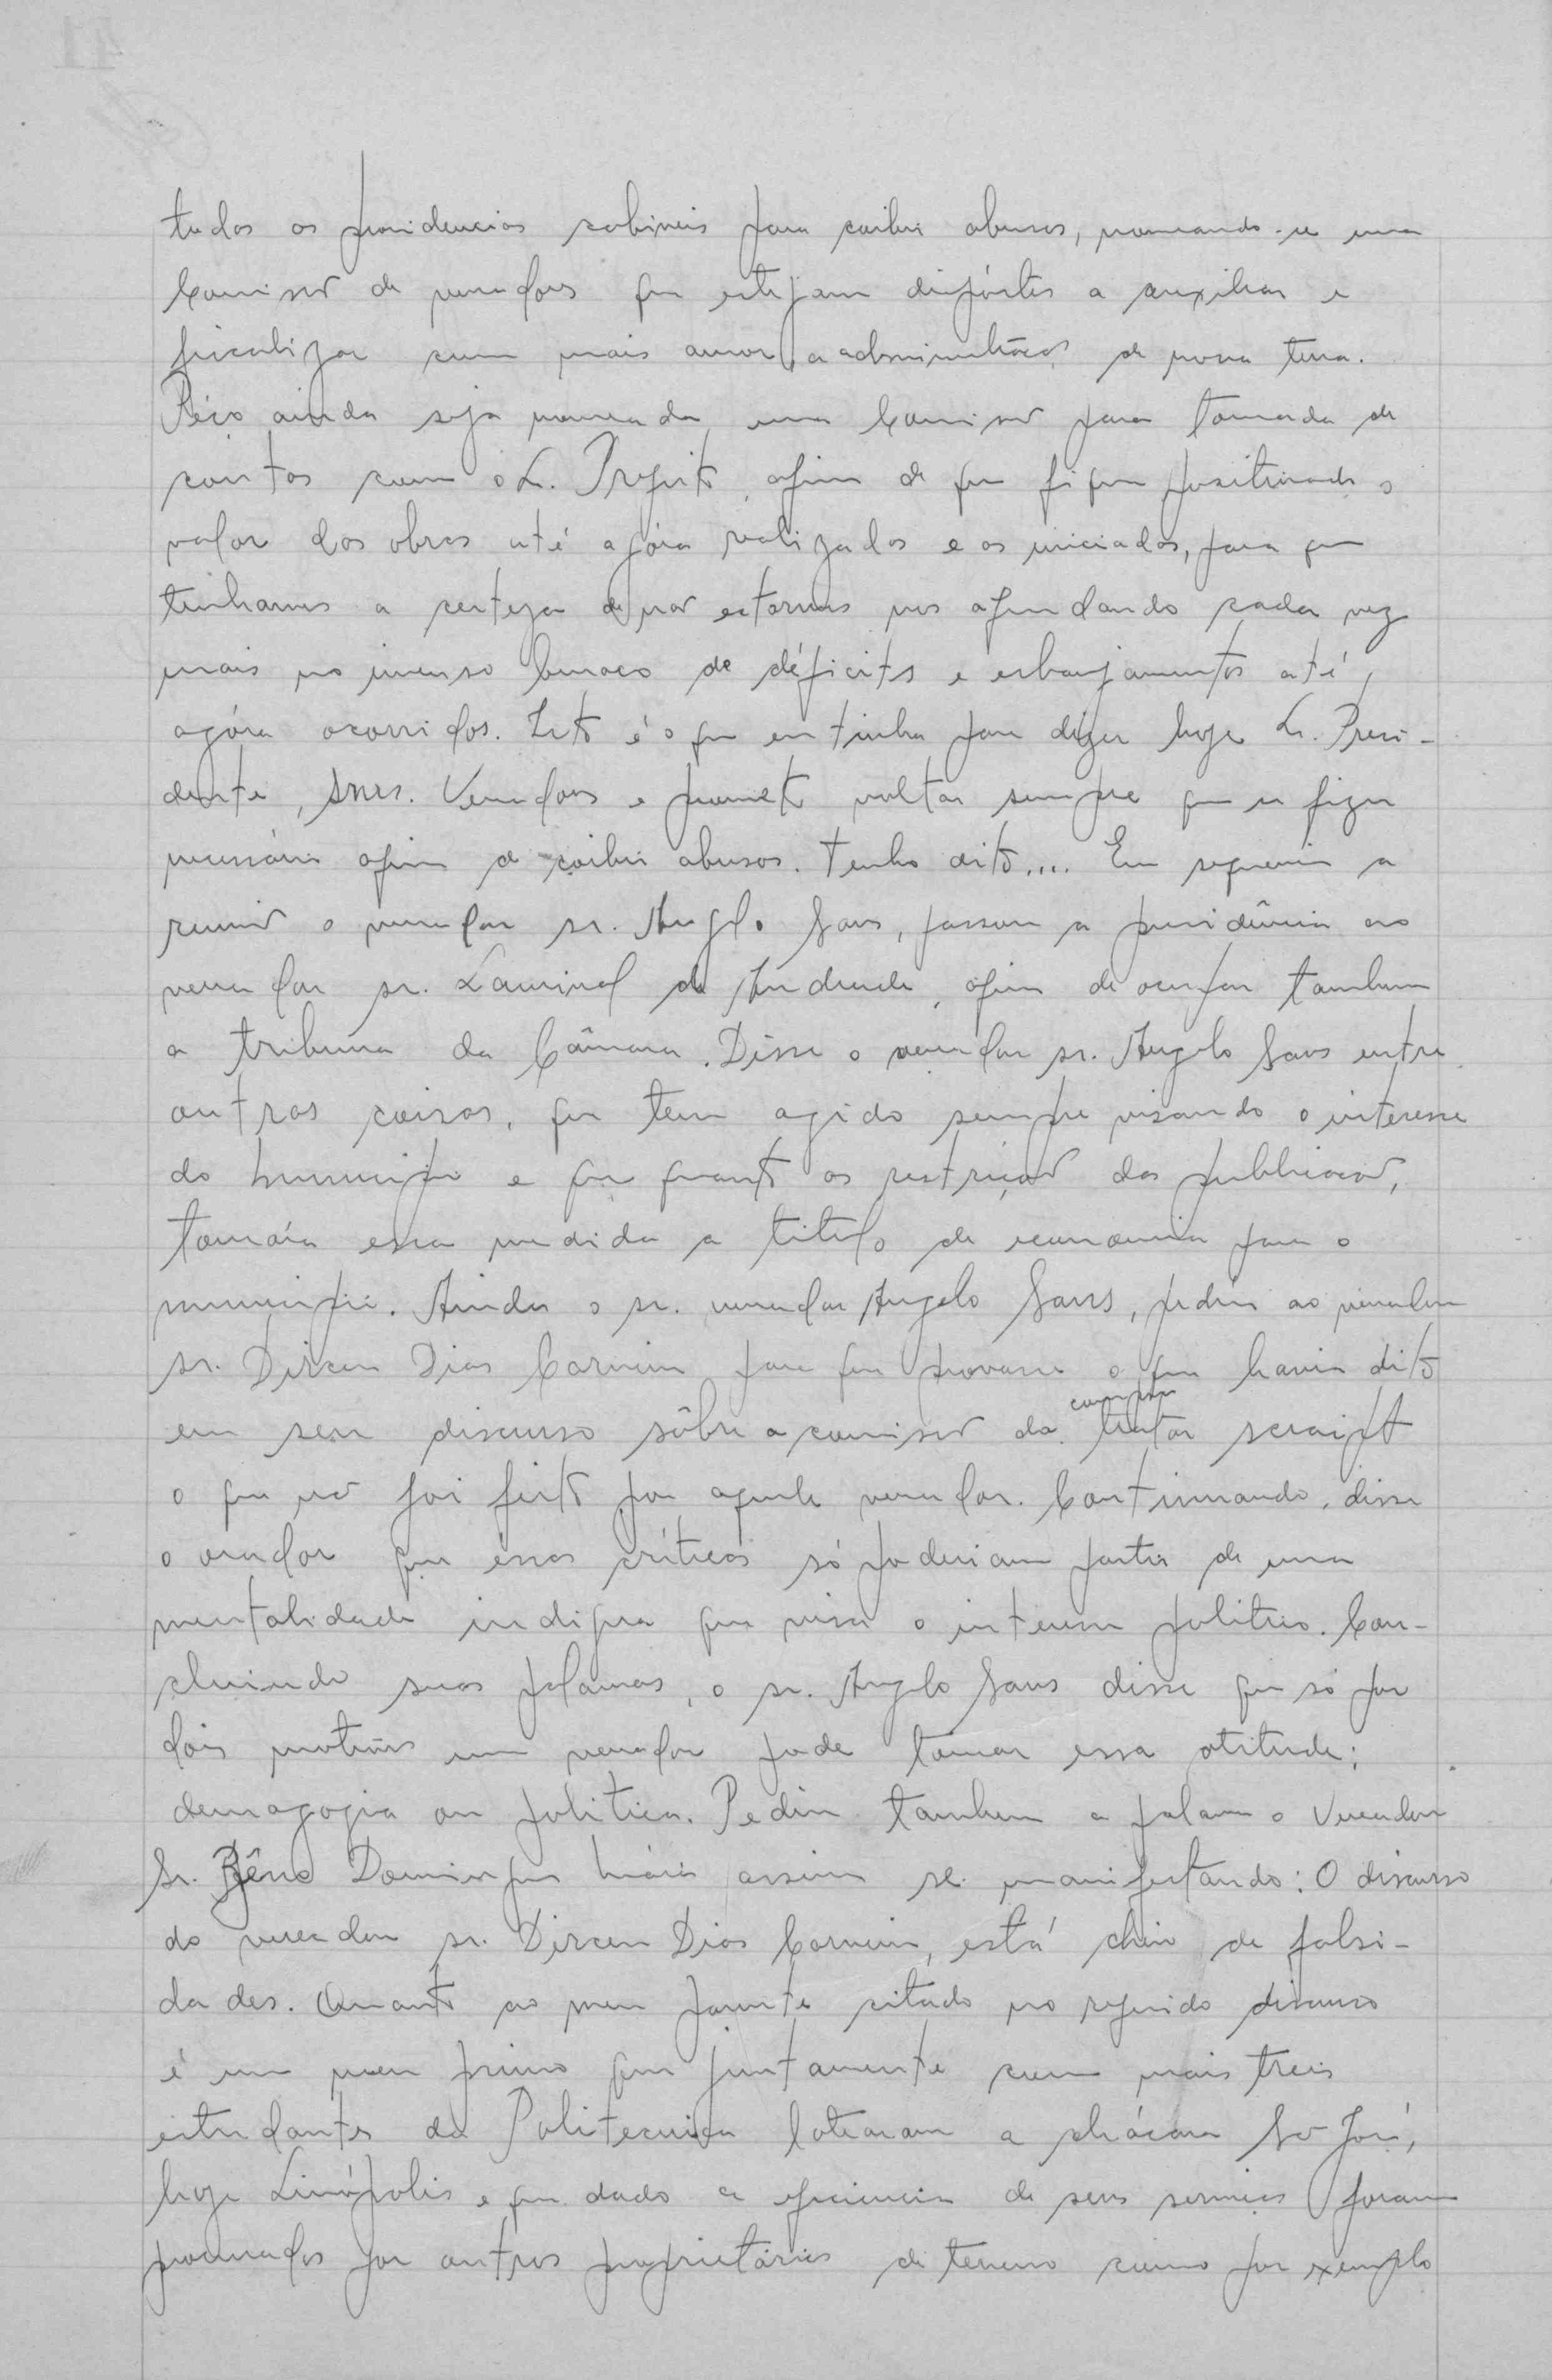 todas as providencias cabiveis para coibir abusos, nomeando-se uma
Comissão de vereadores que estejam dispóstos a auxiliar e
fiscalizar com mais amor, a administração de nossa terra.
Péço ainda seja nomeada uma Comissão para tomada de
contas com o Sr. Prefeito, afim de que fique positivado o
valor das obras até agóra realizadas e as iniciadas, para que
tenhamos a certeza de não estarmos nos afundando cada vez
mais no imenso buraco de déficits e esbanjamentos até
agóra ocorridos. Isto é o que eu tinha para dizer hoje Sr. Presi-
dente, Snrs. Vereadores e prometo voltar sempre que se fizer
necessário afim de coibir abusos. Tenho dito.... Em seguida a
reunião o vereador sr. Angelo Sans, passou a presidência ao
vereador sr. Lourival de Andrade, afim de ocupar tambem
a tribuna da Câmara. Disse o vereador sr. Angelo Sans entre
outras coisas, que tem agido sempre visando o interesse
do municipio e que quanto as restrição das publicação,
tomára essa medida a titulo de economia para o
municipio. Ainda o sr. vereador Angelo Sans, pediu ao vereador
sr. Dirceu Dias Carneiro para que provasse o que havia dito
em seu discurso sôbre a comissão da compra trator
o que não foi feito por aquele vereador. Continuando, disse
o orador que éssas críticas só poderiam partir de uma
mentalidade indigna que visa o interesse politico. Con-
cluindo suas palavras, o sr. Angelo Sans disse que só por
dois motivos um vereador pode tomar essa atitude:
demagogia ou politica. Pediu tambem a palavra o Vereador
Sr. Domingues assim se manifestando: O discurso
do vereador sr. Dirceu Dias Carneiro, está cheio de falsi-
dades. Quanto ao meu parente citado no referido discurso
é um meu primo que juntamente com mais treis
estudantes da Politecnica lotearam a chácara São José,
hoje Linópolis e que dado a eficiencia de seus serviços foram
procurados por outros proprietários de terreno como por exemplo